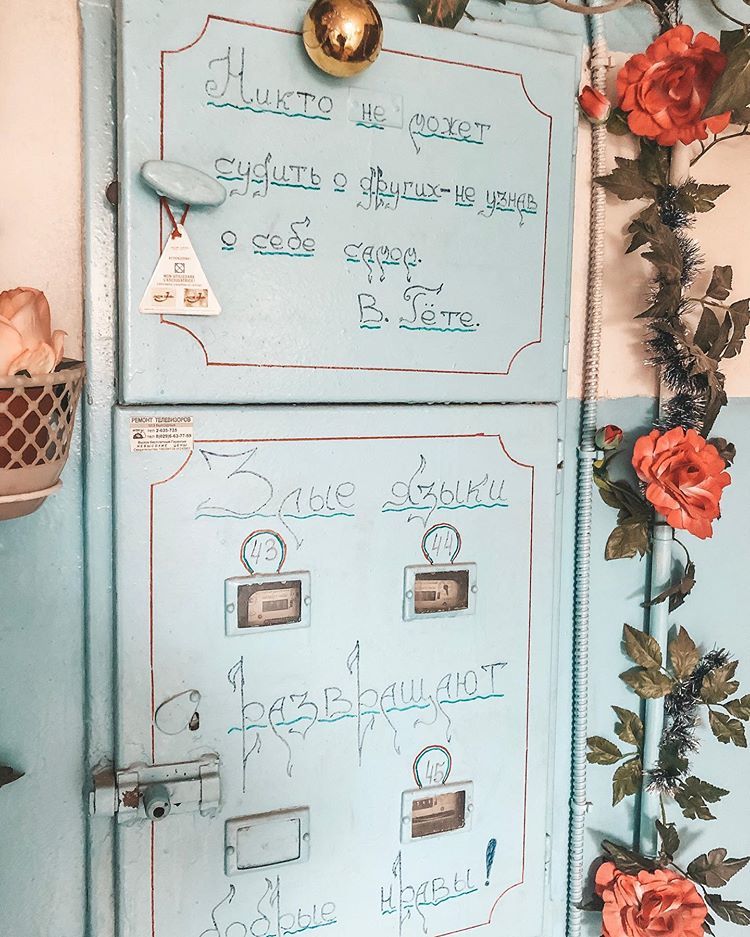 Никто не может
судить о других - не узнав
о себе самом.
В. Гёте.
РЕМОНТ ТЕЛЕВИЗОРОВ
тел 2-635-735
Злые языки
43 44
развращают
45
добрые нравы!